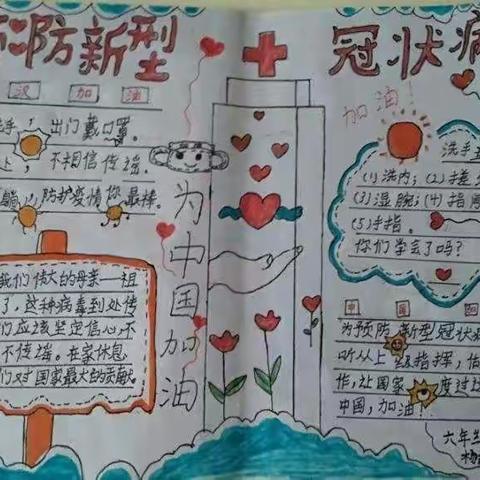 防新型
冠状病
汉 加 油
洗手，出门戴口罩。
处，不相信传谣。
躺，防护疫情你最棒。
我们伟大的母亲——祖
了，这种病毒到处传
们应该坚定信心，不
不传谣。在家休息
们对国家最大的贡献
为中国加油
加油！
洗手
(1)洗内；(2)搓
(3)湿腕；(4)指
(5)手指。
你们学会了吗？
中 国
为预防新型冠状
听从上级指挥，
作，让国家 度过
中国，加油！
六年
杨